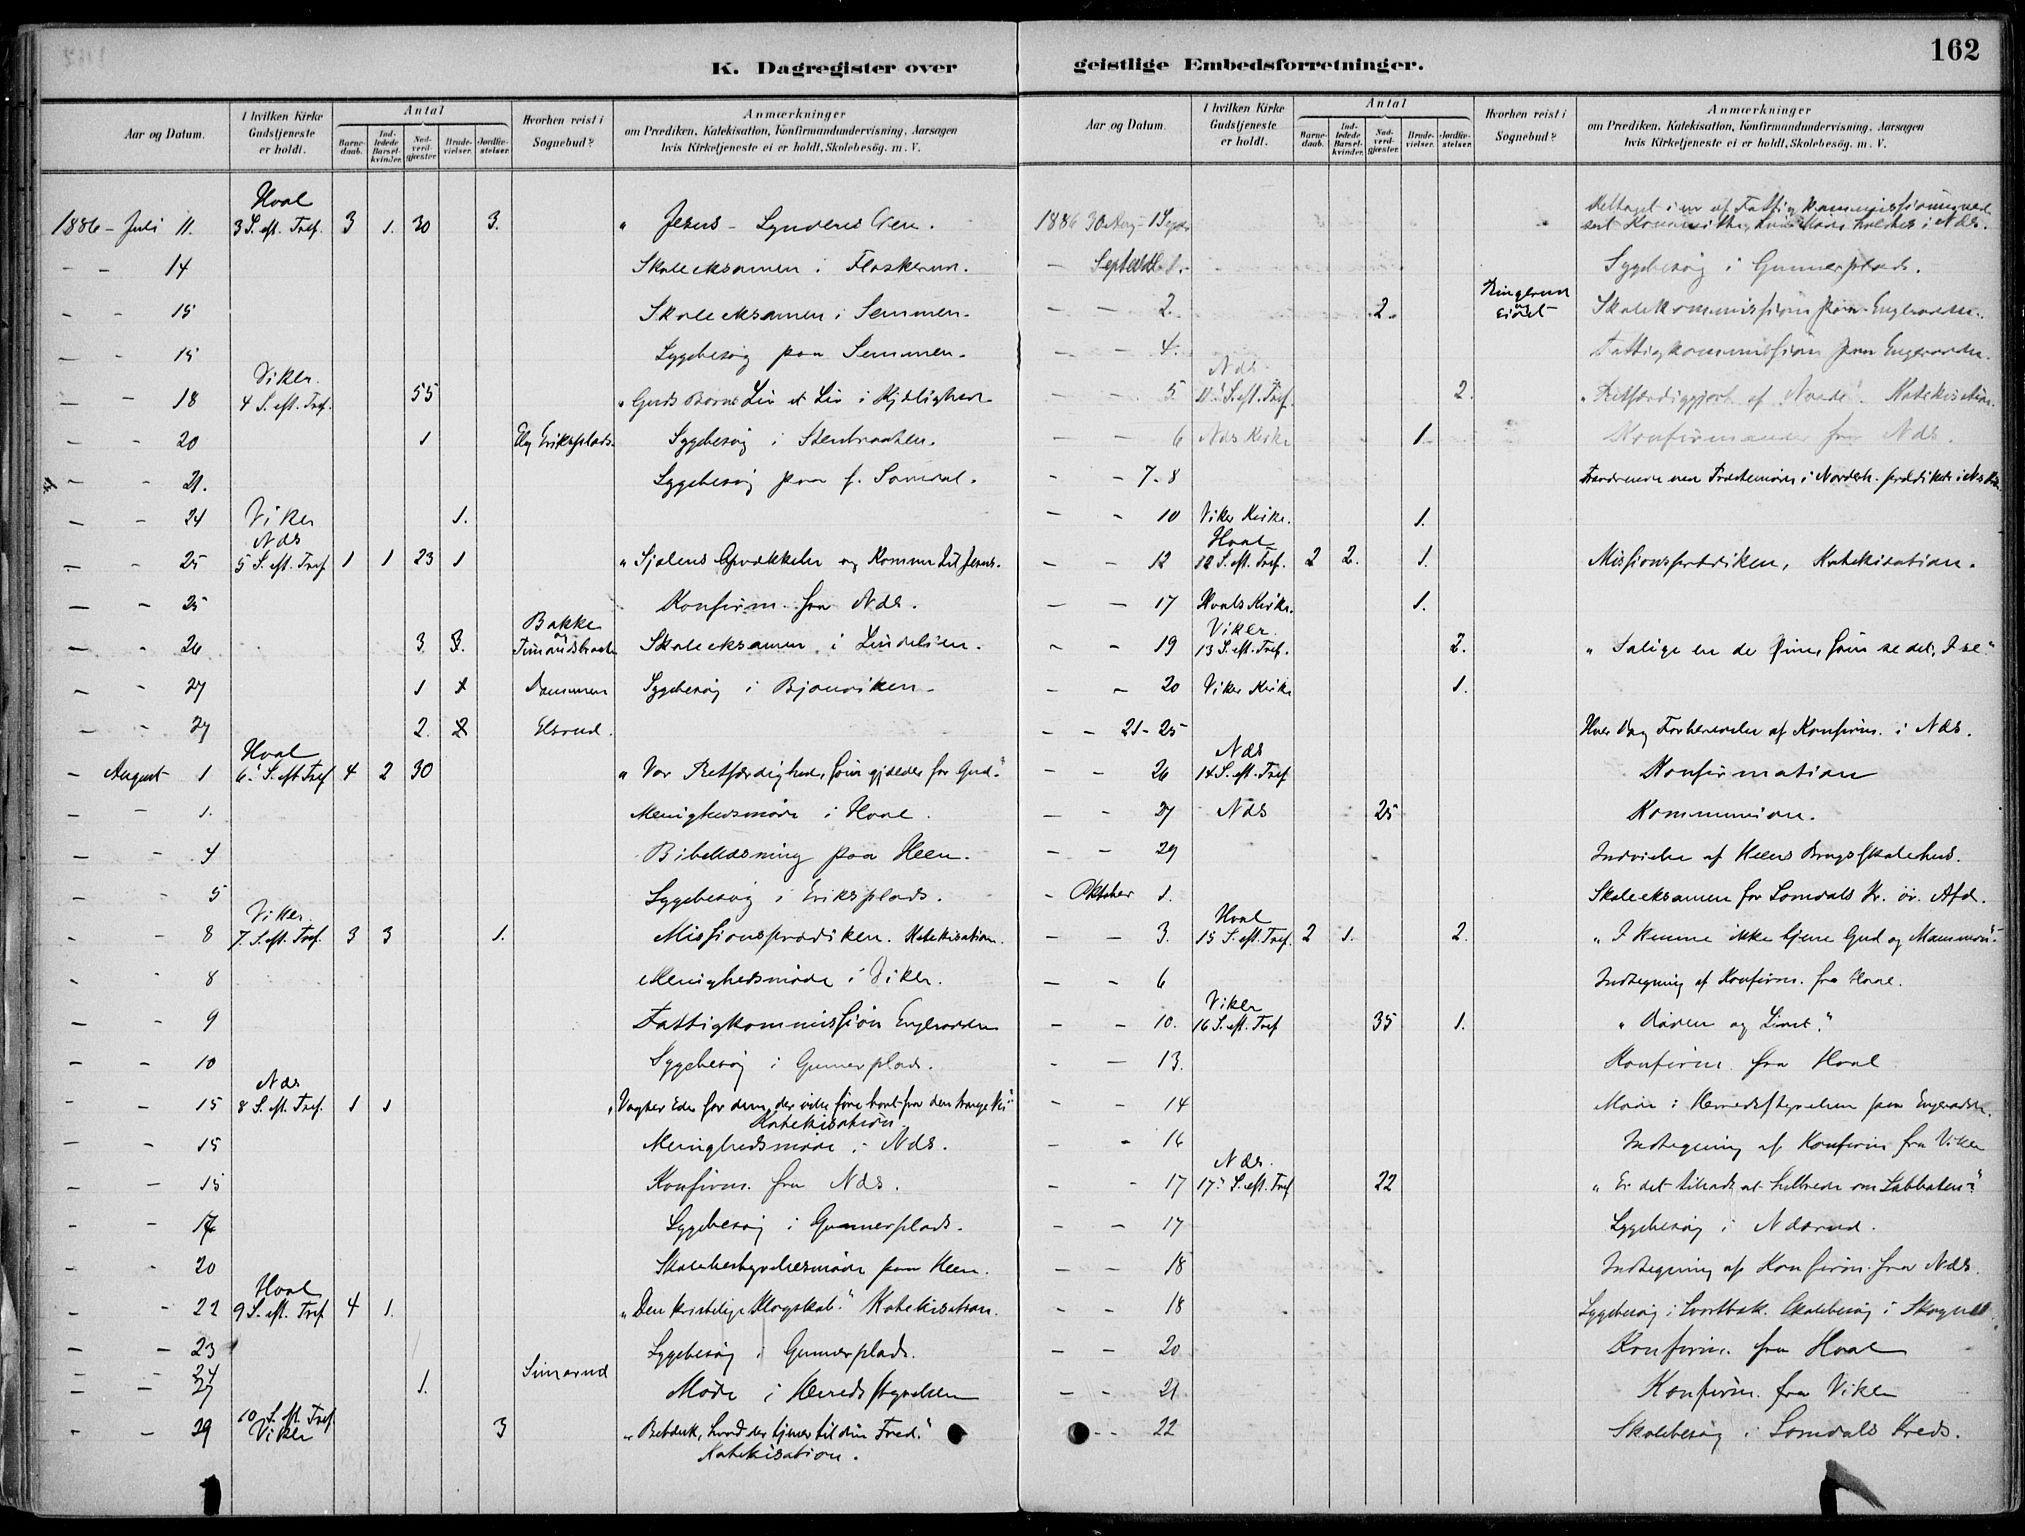 162
K. Dagregister over
Aar og Datum.
I hvilken Kirke Gudstjeneste er holdt.
Antal
Barnedaab.
Indledede Barselkvinder.
Nadverdgjæster.
Brudevielser.
Jordfæstelser.
Hvorhen reist i Sognebud?
Anmærkninger
om Prædiken, Katekisation, Konfirmandundervisning, Aarsagen
hvis Kirketjeneste ei er holdt, Skolebesøg. m. V.
1886 – Juli 11. Hval 3 S. eft. Tref. 3 1. 30 3. " Jesus – Synderes Ven.
– – 14 Skoleeksamen i Flaskerud.
– – 15 Skoleeksamen i Semmen.
– – 15 Sygebesøg paa Semmen.
– – 18 Viker. 4 S. eft. Tref. 55 "Guds Børns Liv et Liv i Kjærlighed
– – 20 1 Eriksplads. Sygebesøg i Stenbraaten.
– – 21. Sygebesøg paa f. Somdal.
– – 24 Viker 1.
– – 25 Næs 5 S. eft. Tref 1 1 23 1 "Sjælens Opvækkelse og Komme til Jesus.
– – 25 Konfirm. fra Næs.
– – 26 3 3. Bakke og Skoleeksamen i Lindelien.
– – 27 1 1 Dammen Sygebesøg i Bjonviken.
– – 27 2. 2 Elsrud.
– August 1 Hval 6. S. eft Tref 4 2 30 "Vor Retfærdighed, som gjælder for Gud."
– – 1. Menighedsmøde i Hval.
– – 4 Bibellæsning paa Heen.
– – 5 Sygebesøg i Eriksplads.
– – 8 Viker. 7. S. eft. Tref. 3 3 1. Missionsprædiken. Katekisation.
– – 8 Menighedsmøde i Viker.
– – 9 Fattigkommission Engerodden
– – 10 Sygebesøg i Gunnerplads.
– – 15 Næs 8 S. eft. Tref. 1 1 "Vogter Eder for dem, der ville føre bort fra den trange Vei"
Katekisation.
– – 15 Menighedsmøde i Næs.
– – 15 Konfirm. fra Næs.
– – 17 Sygebesøg i Gunnerplads.
– – 20 Skolebestyrelsesmøde paa Heen.
– – 22 Hval 9 S. eft. Tref 4 1. "Den kristelige Klogskab." Katekisation.
– – 23 Sygebesøg i Gunnerplads.
– – 24
– – 27 1. Simarud Møde i Herredsstyrelsen
– – 29 10 S. eft. Tref. Viker 3 "Betænk, hvad der tjener til din Fred."
Katekisation.
geistlige Embedsforretninger.
Aar og Datum.
I hvilken Kirke Gudstjeneste er holdt.
Antal
Barnedaab.
Indledede Barselkvinder.
Nadverdgjæster.
Brudevielser.
Jordfæstelser.
Hvorhen reist i Sognebud?
Anmærkninger
om Prædiken, Katekisation, Konfirmandundervisning, Aarsagen
hvis Kirketjeneste ei er holdt, Skolebesøg. m. V.
1886 30 Aug – 1 Sept. Deltaget i en af Fattigkommissionen
Møde holdtes i Næs.
– Septembr. 1. Sygebesøg i Gunnerplads.
– – 2. 2. Ringerud og Eidet Skolekommission paa Engerodden.
– – 4. Fattigkommission paa Engerodden.
– – 5 Næs 11 S. eft. Tref. 2. "Retfærdiggjort af Naade". Katekisation.
– – 6 Næs Kirke 1. Konfirmander fra Næs.
– – 7–8 i Norderh. prædikede i Næs
– – 10 Viker Kirke. 1.
– – 12 Hval 12 S. eft. Tref. 2 2. 1. Missionsprædiken, Katekisation.
– – 17 Hvals Kirke. 1.
– – 19 Viker. 13 S. eft. Tref. 2. " Salige ere de Øine, som se det, I se."
– – 20 Viker Kirke 1.
– – 21–25 Hver Dag Forberedelse af Konfirm. i Næs.
– – 26 Næs 14 S. eft. Tref Konfirmation
– – 27 Næs 25 Kommunion.
– – 29 Indvielse af Heens Brugsskolehus.
– Oktober 1. Skoleeksamen for Somdals Kr. øv. Afd.
– – 3. Hval 15 S. eft. Tref. 2 1. 2. "I kunne ikke tjene Gud og Mammon".
– – 6 Indtegning af Konfirm. fra Hval.
– – 10. Viker 16 S. eft. Tref 35 1. "Døden og Livet."
– – 13. Konfirm. fra Hval
– – 14 Møde i Herredsstyrelsen paa Engerodden.
– – 16 Indtegning af Konfirm fra Viker
– – 17 Næs. 17. S. eft. Tref 22 "Er det tilladt at helbrede om Sabbaten?"
– – 17 Sygebesøg i Næsrud.
– – 18 Indtegning af Konfirm. fra Næs.
– – 18 Sygebesøg i Svartbæk. Skolebesøg i Skogn
– – 20 Konfirm. fra Hval
– – 21 Konfirm. fra Viker
– – 22 Skolebesøg i Somdals Kreds.